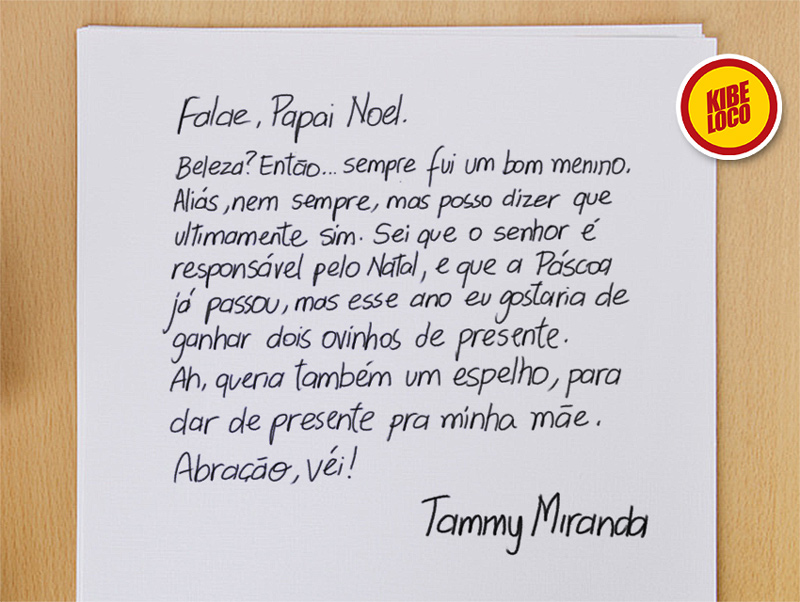 Falae, Papai Noel.
Beleza? Então... sempre fui um bom menino.
Aliás, nem sempre, mas posso dizer que
ultimamente sim. Sei que o senhor é
responsável pelo Natal, e que a Páscoa
já passou, mas esse ano eu gostaria de
ganhar dois ovinhos de presente.
Ah, queria também um espelho, para
dar de presente pra minha mãe.
Abração, véi!
Tammy Miranda
KIBE
LOCO